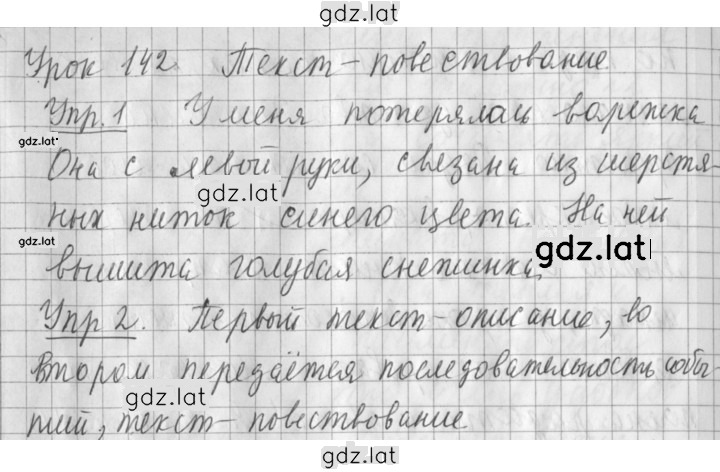 gdz.lat
Урок 142. Текст-повествование
Упр. 1 У меня потерялась варежка
gdz.lat
Она с левой руки, связана из шерстя-
gdz.lat
ных ниток синего цвета. На ней
gdz.lat
gdz.lat
вышита голубая снежинка.
Упр 2. Первый текст-описание, во
втором передаётся последовательность собы-
gdz.lat
тий, текст-повествование
gdz.lat